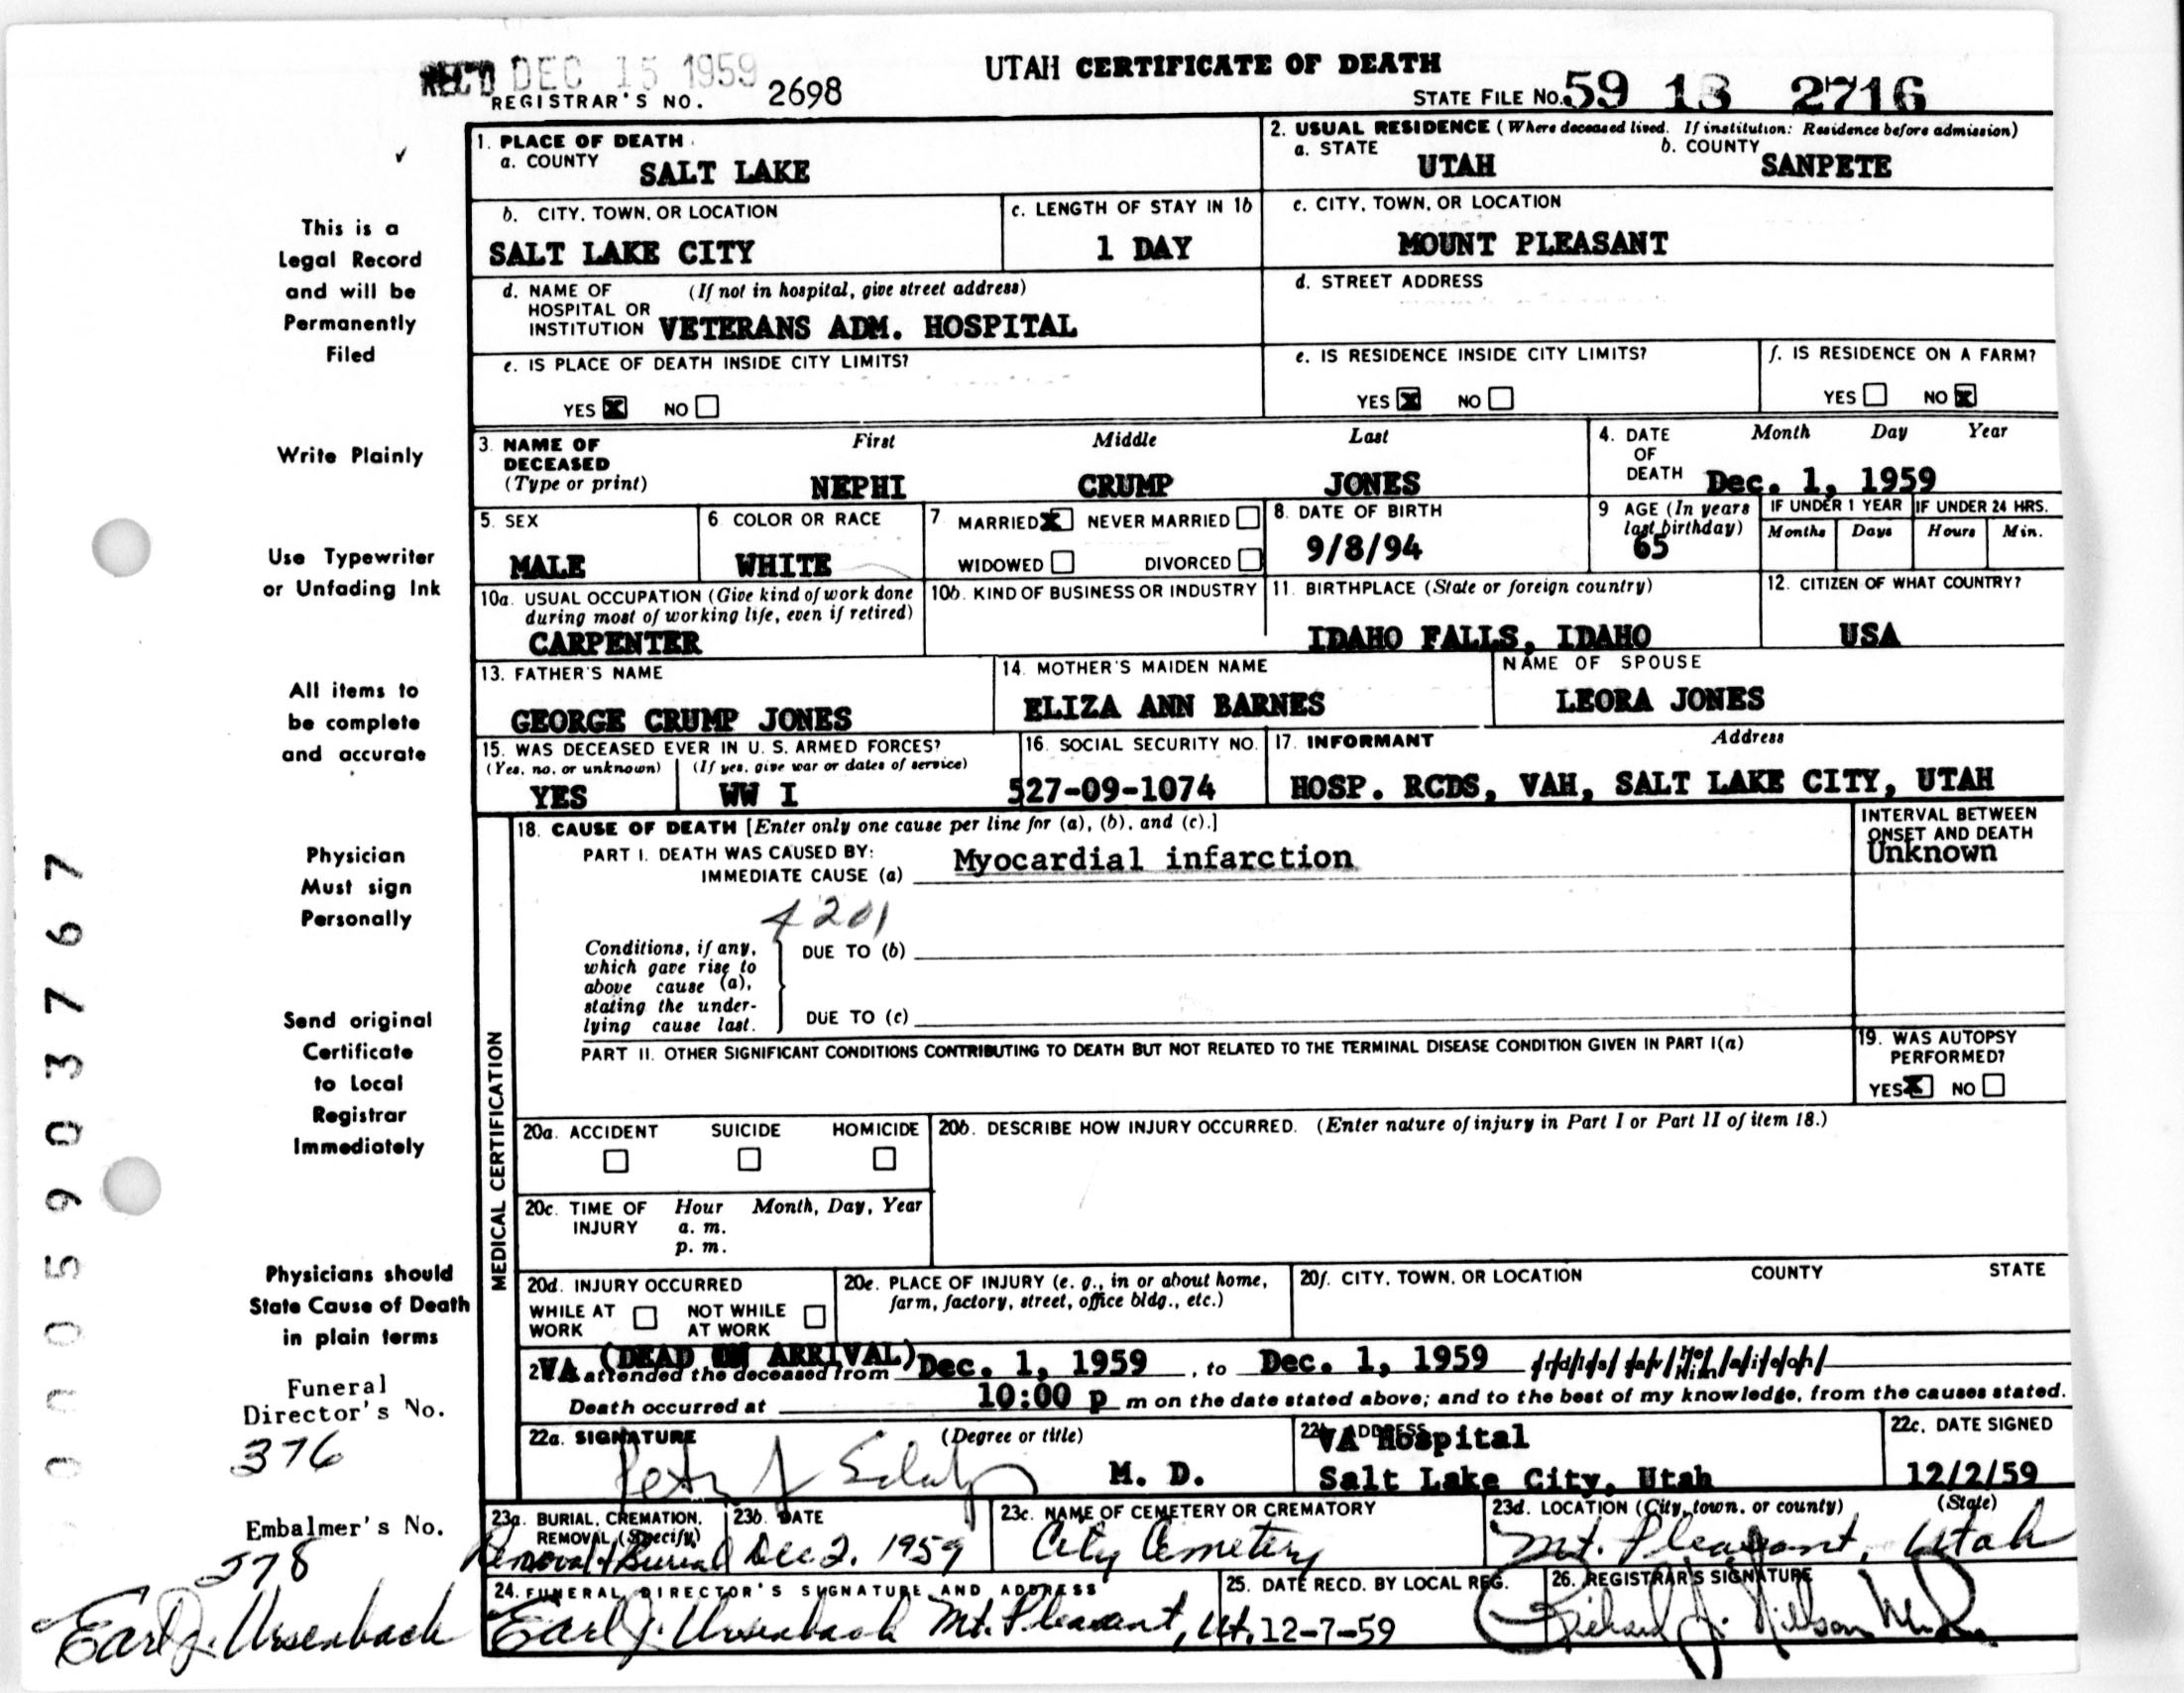 REC'D DEC 15 1959
UTAH CERTIFICATE OF DEATH
REGISTRAR'S NO. 2698
STATE FILE NO. 59 13 2716
1. PLACE OF DEATH
a. COUNTY SALT LAKE
2. USUAL RESIDENCE (Where deceased lived. If institution: Residence before admission)
a. STATE UTAH b. COUNTY SANPETE
b. CITY, TOWN, OR LOCATION SALT LAKE CITY
c. LENGTH OF STAY IN 1b 1 DAY
c. CITY, TOWN, OR LOCATION MOUNT PLEASANT
d. NAME OF HOSPITAL OR INSTITUTION (If not in hospital, give street address) VETERANS ADM. HOSPITAL
d. STREET ADDRESS
e. IS PLACE OF DEATH INSIDE CITY LIMITS?
YES X NO
e. IS RESIDENCE INSIDE CITY LIMITS?
YES X NO
f. IS RESIDENCE ON A FARM?
YES NO X
3. NAME OF DECEASED (Type or print)
First Middle Last
NEPHI CRUMP JONES
4. DATE OF DEATH Month Day Year
Dec. 1, 1959
5. SEX MALE
6 COLOR OR RACE WHITE
7 MARRIED X NEVER MARRIED
WIDOWED DIVORCED
8. DATE OF BIRTH 9/8/94
9 AGE (In years last birthday) 65
IF UNDER 1 YEAR Months Days
IF UNDER 24 HRS. Hours Min.
10a. USUAL OCCUPATION (Give kind of work done during most of working life, even if retired)
CARPENTER
10b. KIND OF BUSINESS OR INDUSTRY
11. BIRTHPLACE (State or foreign country)
IDAHO FALLS, IDAHO
12. CITIZEN OF WHAT COUNTRY?
USA
13. FATHER'S NAME
GEORGE CRUMP JONES
14. MOTHER'S MAIDEN NAME
ELIZA ANN BARNES
NAME OF SPOUSE
LEORA JONES
15. WAS DECEASED EVER IN U. S. ARMED FORCES?
(Yes, no, or unknown) (If yes, give war or dates of service)
YES WW I
16. SOCIAL SECURITY NO.
527-09-1074
17. INFORMANT Address
HOSP. RCDS, VAH, SALT LAKE CITY, UTAH
MEDICAL CERTIFICATION
18. CAUSE OF DEATH [Enter only one cause per line for (a), (b), and (c).]
PART I. DEATH WAS CAUSED BY:
IMMEDIATE CAUSE (a) Myocardial infarction
INTERVAL BETWEEN ONSET AND DEATH
Unknown
4201
Conditions, if any, which gave rise to above cause (a), stating the underlying cause last.
DUE TO (b)
DUE TO (c)
PART II. OTHER SIGNIFICANT CONDITIONS CONTRIBUTING TO DEATH BUT NOT RELATED TO THE TERMINAL DISEASE CONDITION GIVEN IN PART I(a)
19. WAS AUTOPSY PERFORMED?
YES X NO
20a. ACCIDENT SUICIDE HOMICIDE
20b. DESCRIBE HOW INJURY OCCURRED. (Enter nature of injury in Part I or Part II of item 18.)
20c. TIME OF INJURY Hour Month, Day, Year
a. m.
p. m.
20d. INJURY OCCURRED
WHILE AT WORK NOT WHILE AT WORK
20e. PLACE OF INJURY (e. g., in or about home, farm, factory, street, office bldg., etc.)
20f. CITY, TOWN, OR LOCATION COUNTY STATE
(DEAD ON ARRIVAL)
VA attended the deceased from Dec. 1, 1959, to Dec. 1, 1959
Death occurred at 10:00 p m on the date stated above; and to the best of my knowledge, from the causes stated.
22a. SIGNATURE (Degree or title)
M. D.
22b. ADDRESS
VA Hospital
Salt Lake City, Utah
22c. DATE SIGNED
12/2/59
23a. BURIAL, CREMATION, REMOVAL (Specify)
Removal & Burial
23b. DATE
Dec 2, 1959
23c. NAME OF CEMETERY OR CREMATORY
City Cemetery
23d. LOCATION (City, town, or county) (State)
Mt. Pleasant, Utah
24. FUNERAL DIRECTOR'S SIGNATURE AND ADDRESS
Earl J. Ursenbach Mt. Pleasant, Ut.
25. DATE RECD. BY LOCAL REG.
12-7-59
26. REGISTRAR'S SIGNATURE
This is a
Legal Record
and will be
Permanently
Filed
Write Plainly
Use Typewriter
or Unfading Ink
All items to
be complete
and accurate
Physician
Must sign
Personally
Send original
Certificate
to Local
Registrar
Immediately
Physicians should
State Cause of Death
in plain terms
Funeral
Director's No.
376
Embalmer's No.
278
Earl J. Ursenbach
0005903767